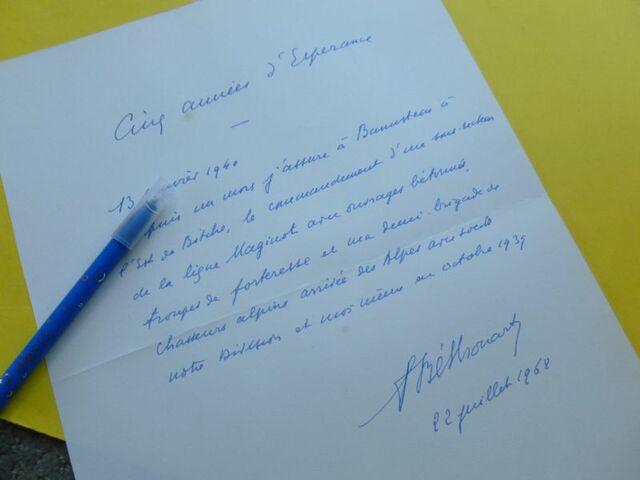 Cinq années d'Espérance
13 1940
puis un mois j'assure à à
l'Est de Bitche, le commandement d'un sous-secteur
de la ligne Maginot avec ouvrages bétonnés,
troupes de forteresse et ma demi-brigade de
Chasseurs alpins arrivée des Alpes avec toute
notre Division et moi même en octobre 1939
Béthouart
22 juillet 1968